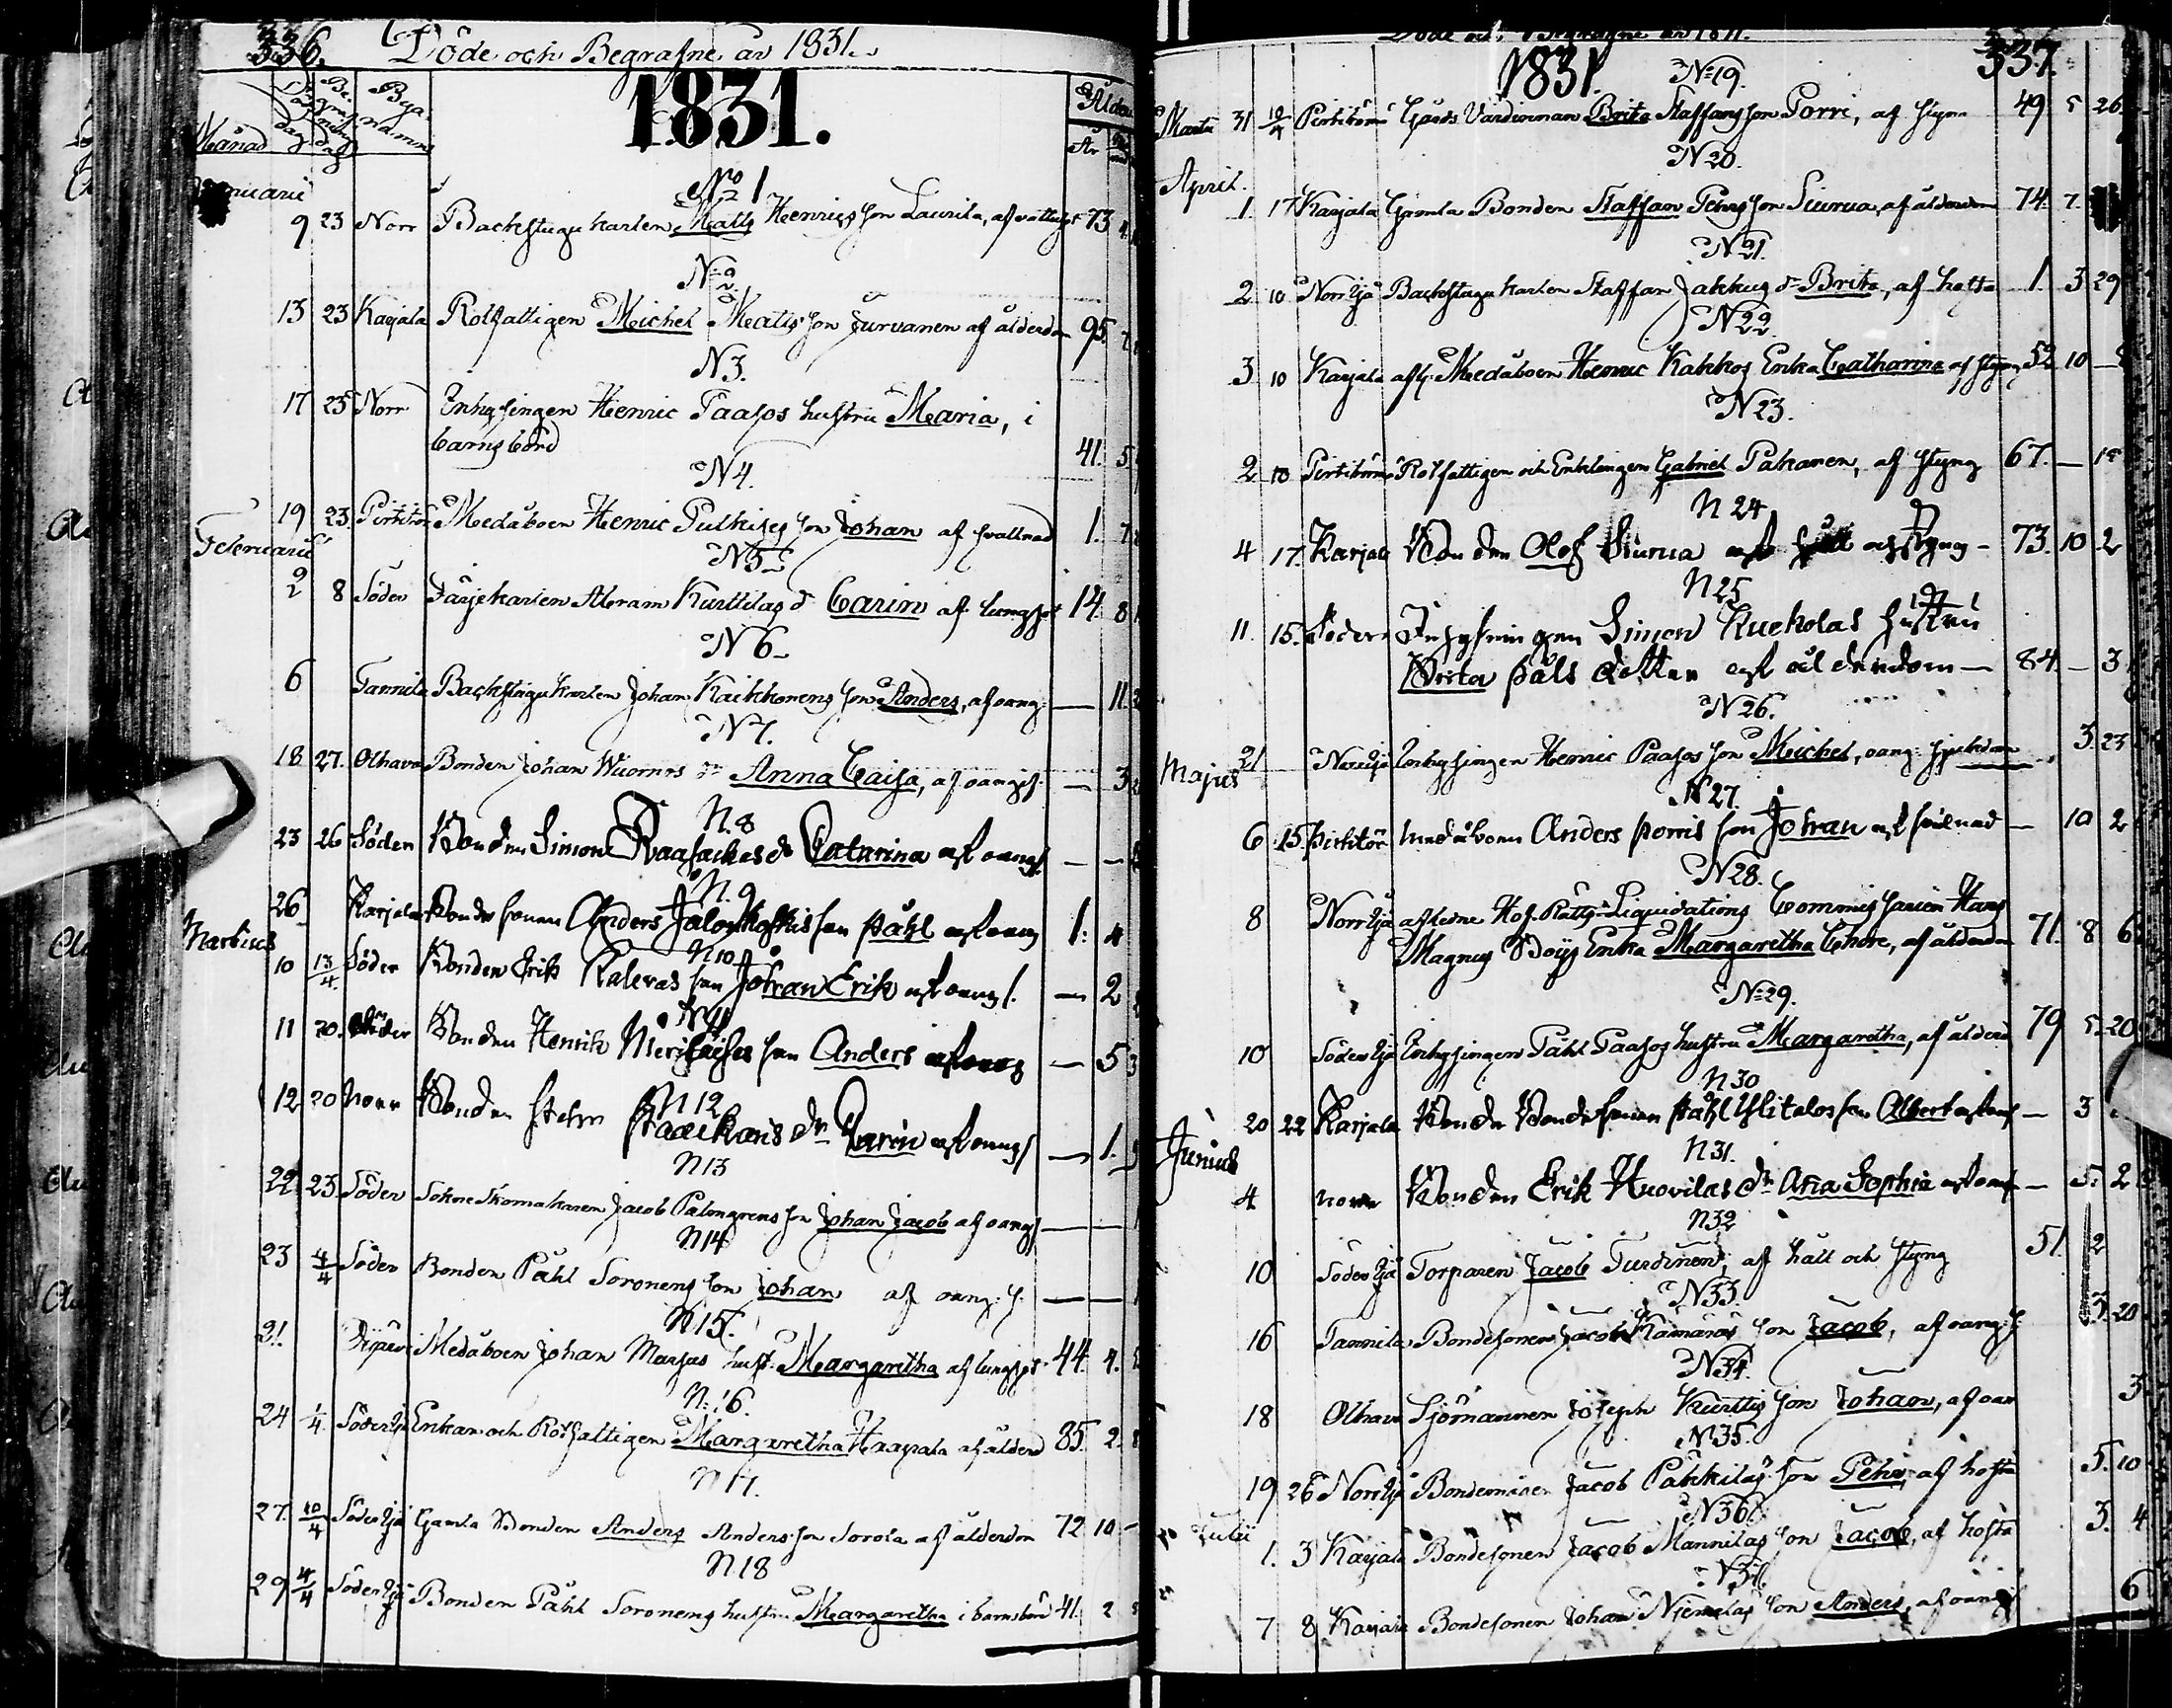 336. Döde och Begrafne år 1831.
Månad Dödsdag Begrafningsdag Byanamn 1831. Ålder
År
Januarii
No 1
9 23 Norr Backstugukarlen Matts Henricsson Laurila, af vattusot 73
N 2.
13 23 Karjala Rotfattigen Michel Matsson Jurvanen af ålderdom 95.
N 3.
17 25 Norr Inhysingen Henric Paasos hustru Maria, i
barnsbörd 41. 5
N 4.
19 23 Medåboen Henric Pulkises son Johan af svullnad 1.
Februarii
N 5
2 8 Söder Färjekarlen Abram Kurttilas dr Carin af lungsot 14. 8
N 6.
6 Tannila Backstugukarlen Johan Kaikkonens son Anders, af oang. — 11
N 7.
18 27. Olhava Bonden Johan Wuornos dr Anna Caisa, af oangif. — 3
N. 8
23 26 Söder Bonden Simon Raasackas dr Catarina af oangf. — —
N. 9
26 Karjala Bondesonen Anders Jalonkoskis son Påhl af oang 1. 4
Martius
N 10
10 13/4. Söder Bonden Erik Kalevas son Johan Erik af oangf. — 2
N 11
11 20. Söder Bonden Henrik son Anders af oang — 5 3
N 12
12 20 Norr Bonden Stefan dr Carin af oangf — 1.
N 13
22 23. Söder Sokneskomakaren Jacob Palmgrens son Johan Jacob af oangf — —
N 14
23 4/4 Söder Bonden Påhl Soronens son Johan af oang. f. — —
N 15.
21 Medåboen Johan hust. Margaretha af lungsot. 44. 4.
N. 16.
24 1/4. Söder Ijå Enkan och Rotfattigen Margaretha Haapala af ålderd 85. 2.
N 17.
27. 10/4 Söder Ijå Gamla Bonden Anders Andersson Sorola af ålderdom 72 10 —
N. 18
29 4/4 Söder Ijå Bonden Påhl Soronens hustru Margaretha i barnsbörd 41. 2
1831. 337.
N:19.
Martii 31 10/4 Gårds Värdinnan Brita Staffansson Porri, af styng 49 5 26
N 20.
April.
1. 17 Karjala Gamla Bonden Staffan Pehrsson Siurua, af ålderdom 74. 7.
N 21.
2 10 Norr Ijå Backstugukarlen Staffan Jakkus dr Brita, af hosta 1. 3 29
N 22.
3 10 Karjala afl. Medåboen Henric Kakkos Enka Catharina af styng 52 10 —
N 23.
2 10 Rotfattigen och Enklingen Gabriel Pakanen, af styng 67. —
N 24
4 17. Karjala Bonden Olof Siurua af styng — 73. 10 2
N 25
11. 15. Söder Inhysingen Simon Kuckolas hustru
Brita Påls dotter af ålderdom — 84. — 3
N 26.
21 Norr Ijå Inhysingen Henric Paasos son Michel, oang: sjukdom 3. 23
Majus
N 27.
6 15. Medåboen Anders Porris son Johan af — 10 2
N 28.
8 Norr Ijå afledne Hof-Rätts-Liquidations Commissarien Hans
Magnus Boijs Enka Margaretha Chore, af ålderdom 71. 8 6
N:29.
10 Söder Ijå Inhysingen Påhl Paasos hustru Margaretha, af ålderd 79 5. 20
N 30
20 22 Karjala Bonde Bondesonen Påhl Ylitalos son Albert af oangf — 3
Junius
N 31.
4 Norr Bonden Erik Huovilas dr Ana Sophia af oangf — 5. 2
N 32
10 Söder Ijå Torparen Jacob Turdinen, af håll och styng 51. 2
N 33.
16 Tannila Bondesonen Jacob Kämäräs son Jacob, af oang:f. 3. 20
N 34.
18 Olhava Sjömannen Joseph Kurttis son Johan, af oan 3
N 35.
19 26 Norr Ijå Jacob Pakkilas son Pehr, af hosta 5. 10
Julii
N 36.
1. 3 Karjala Bondesonen Jacob Mannilas son Jacob, af hosta 3. 4
N 37.
7 8 Karjala Bondesonen Johan Niemelas son Anders, af oangif 6